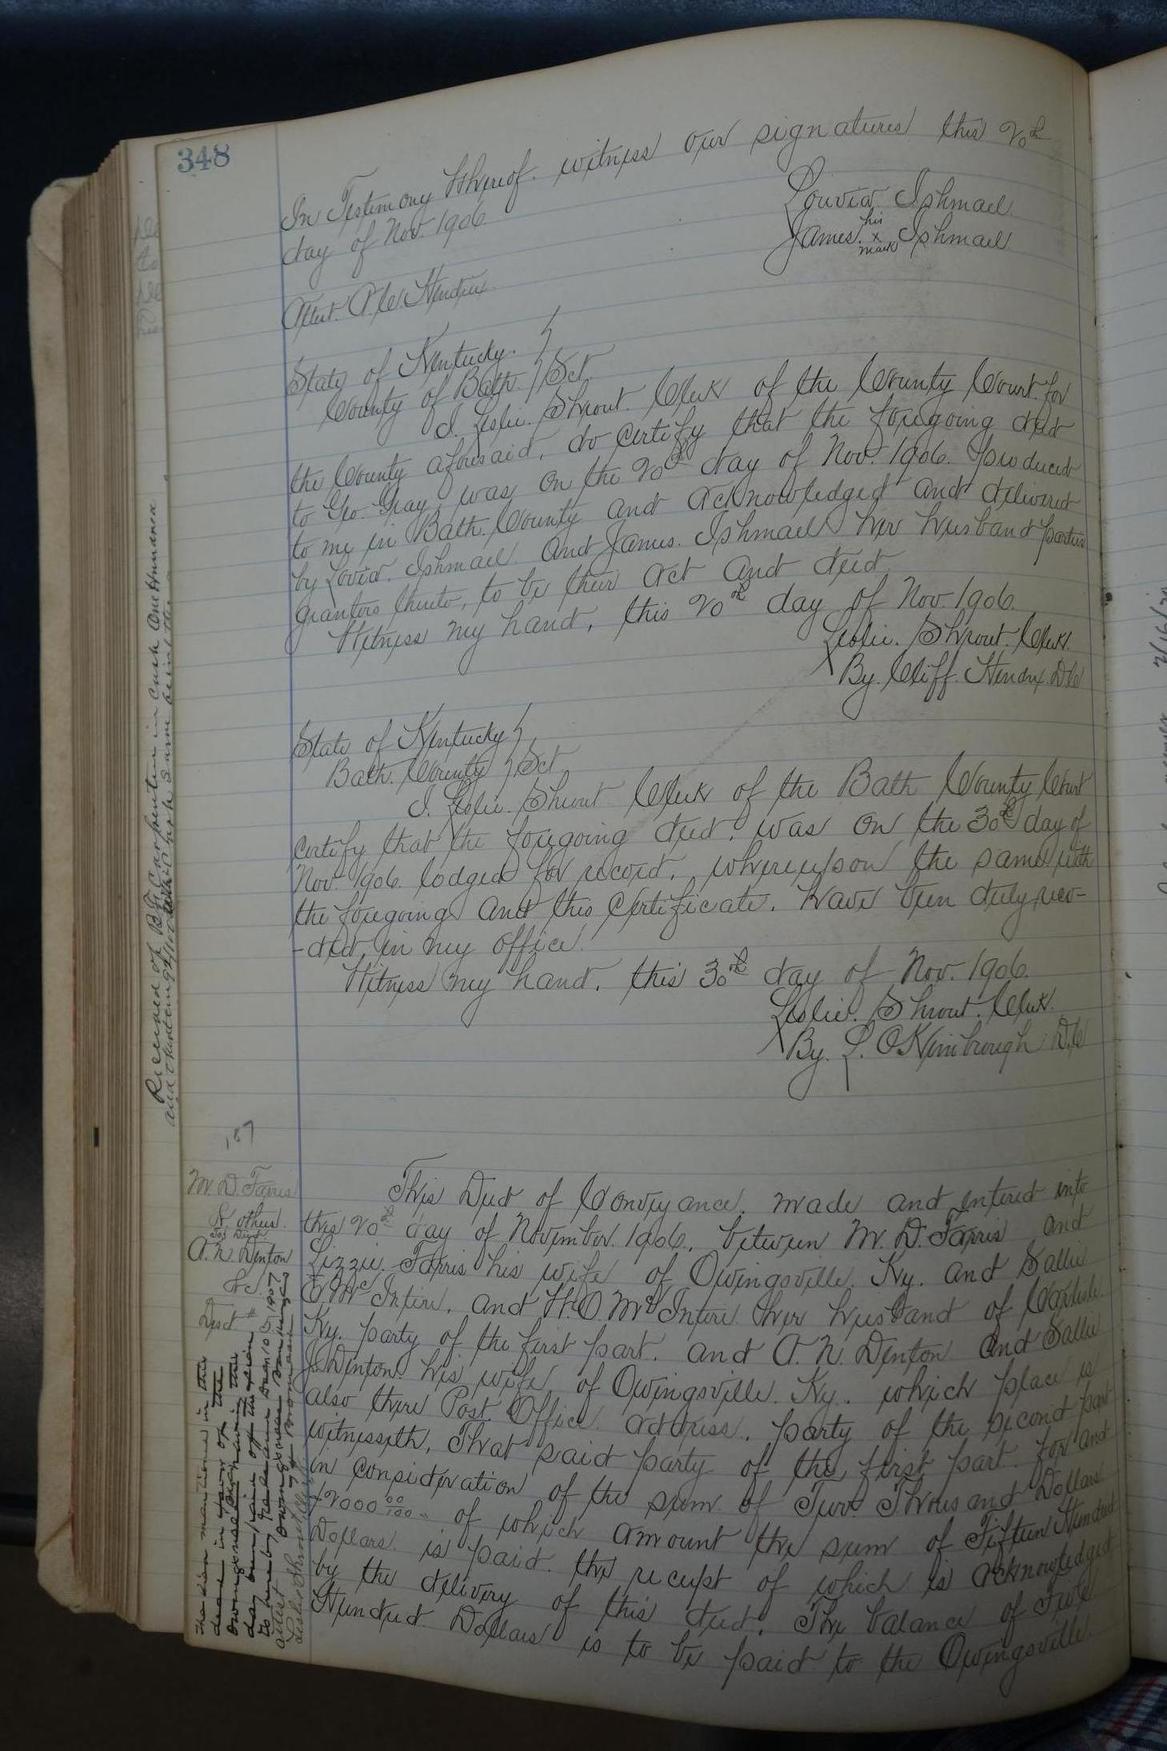 348
In Testimony Whereof. witness our signatures this 20th
day of Nov. 1906.
Louvia Ishmael
James his x mark Ishmael
Attest. 
State of Kentucky. }
County of Bath. } Sct
I. Leslie. Shrout. Clerk of the County Court for
the County aforesaid, do certify that the foregoing deed
to Geo. Gray, was, on the 20th day of Nov. 1906. produced
to me in Bath. County and acknowledged and delivered
by Lovia. Ishmael and James. Ishmael her husband parties
grantors thereto, to be their act and deed.
Witness my hand, this 20th day of Nov. 1906.
Leslie. Shrout. Clerk.
By. Cliff. Hendrix D.C.
State of Kentucky }
Bath. County } Sct
I. Leslie. Shrout Clerk of the Bath County Court
certify that the foregoing deed. was on the 30th day of
Nov. 1906. lodged for record. whereupon the same, with
the foregoing and this certificate. have been duly recor-
-ded, in my office.
Witness my hand. this 30th day of Nov. 1906.
Leslie. Shrout. Clerk.
By. L. O Kimbrough D.C.
187
M. D. Farris
& others.
To } Deed
A. N. Denton
&c.
This Deed of Conveyance. made and entered into
this 20th day of November. 1906. between M. D. Farris and
Lizzie. Farris his wife of Owingsville. Ky. and Sallie
E. McIntire. and H. O. McIntire her husband of Carlisle
Ky. party of the first part. and A. N. Denton and Sallie
J. Denton. his wife of Owingsville. Ky. which place is
also there Post. Office. address. party of the second part
witnesseth, That said party of the first part. for and
in consideration of the sum of Two. Thousand Dollars
$2000 00/100 - of which amount the sum of Fifteen Hundred
Dollars. is paid. the receipt of which is acknowledged
by the delivery of this deed. The balance of Five
Hundred Dollars is to be paid to the Owingsville.
The lien mentioned in the
deed in favor of the
Owingsville